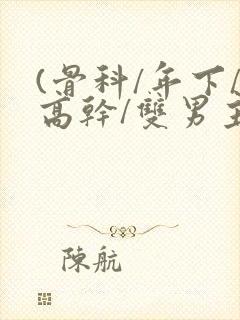 (骨科/年下/
高幹/雙男主
陳航